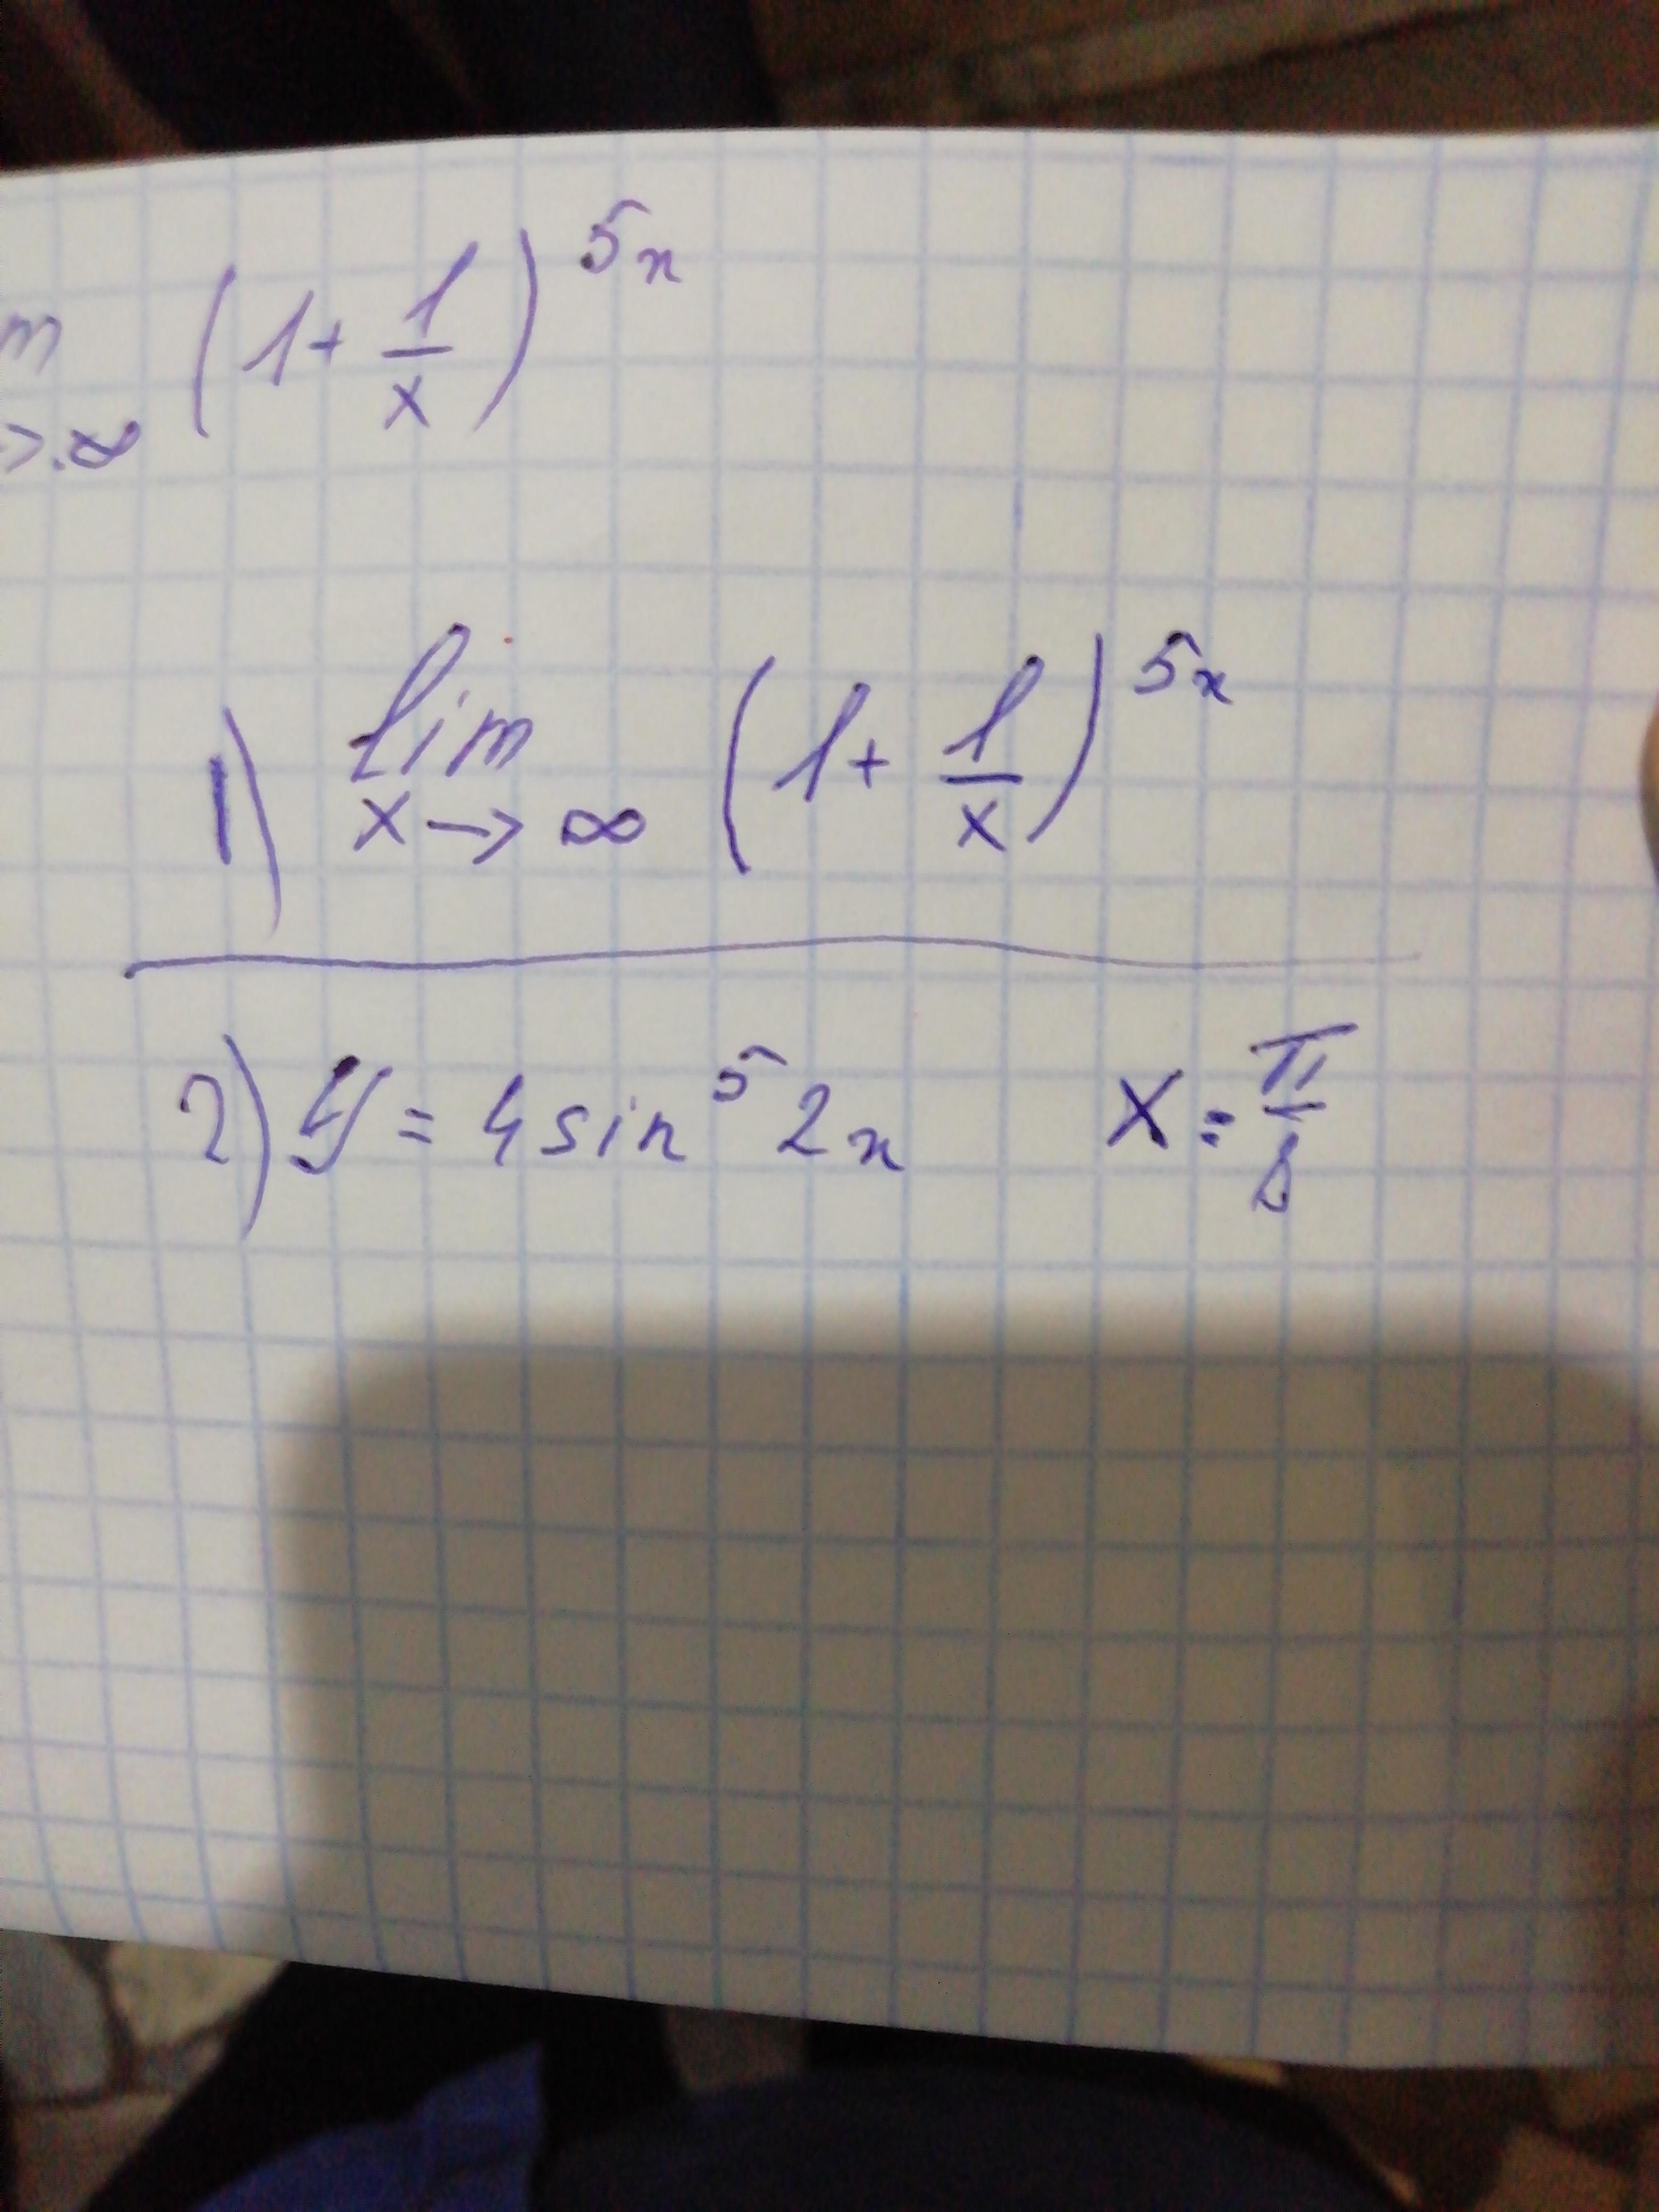 m (1+ 1/x)^5x
→ ∞
1) lim (1+ 1/x)^5x
x→∞
2) y = 4 sin^5 2x x = π/